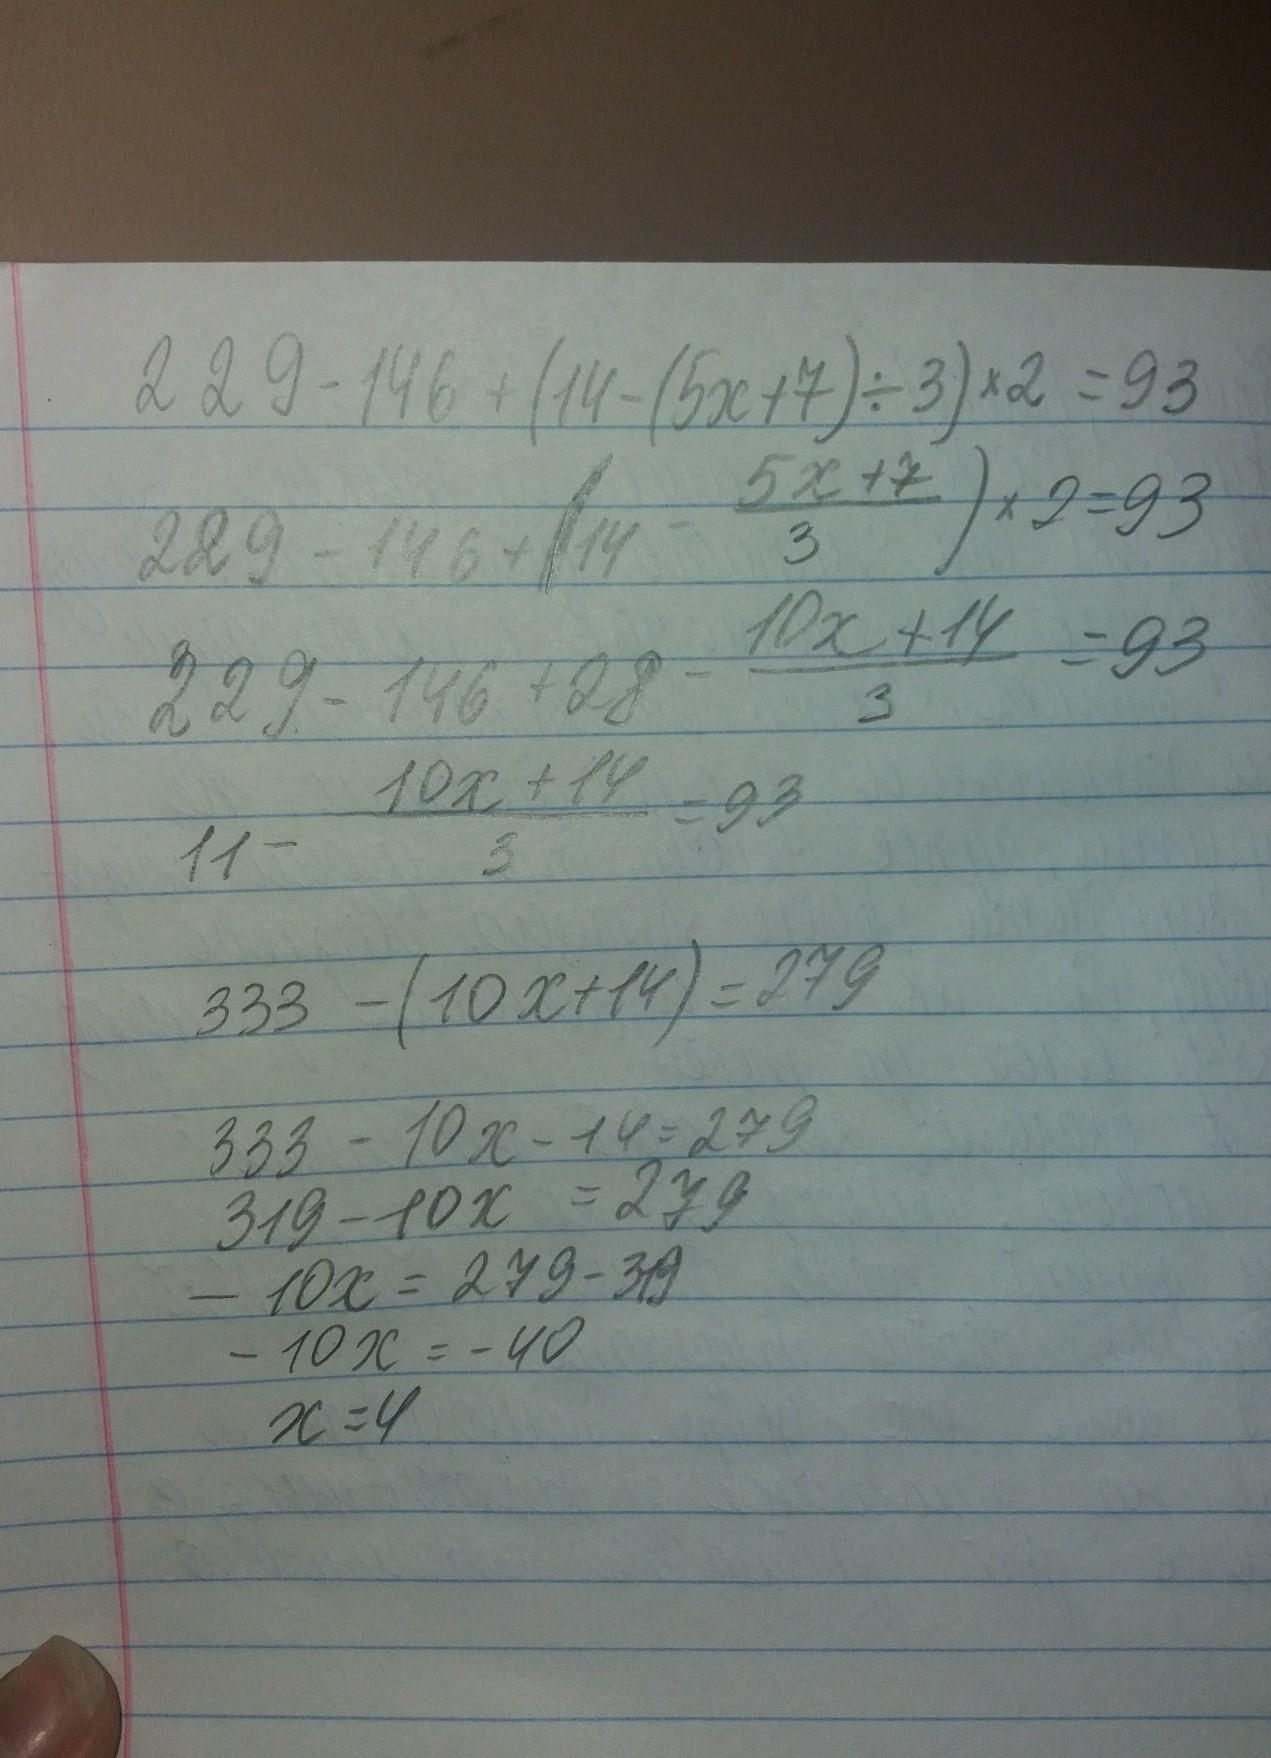 229-146+(14-(5x+7)÷3)×2=93
229-146+(14-\frac{5x+7}{3})×2=93
229-146+28-\frac{10x+14}{3}=93
11-\frac{10x+14}{3}=93
333-(10x+14)=279
333-10x-14=279
319-10x=279
-10x=279-319
-10x=-40
x=4